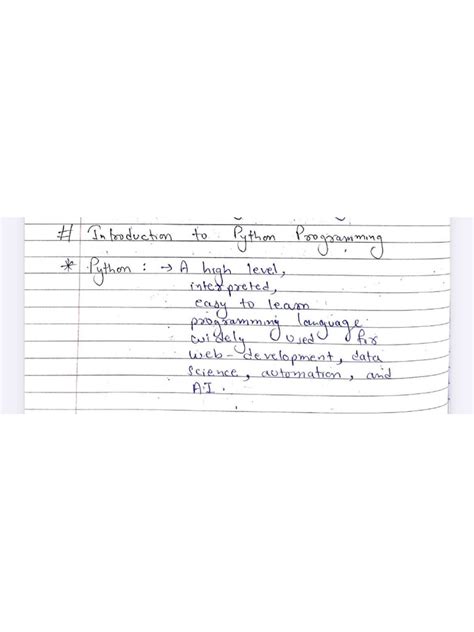 # Introduction to Python Programming
* Python : → A high level,
interpreted,
easy to learn
programming language
widely used for
web-development, data
science, automation, and
AI.